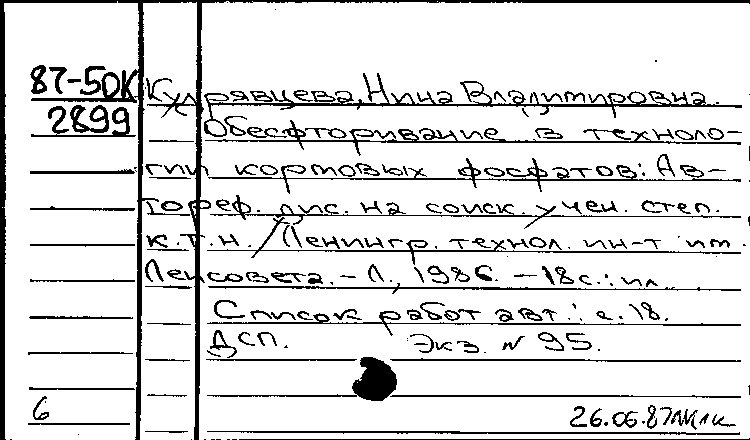 87-5ДК Кудрявцева, Нина Владимировна.
2899 Обесфторивание в техноло-
гии кормовых фосфатов: Ав-
тореф. дис. на соиск. учен. степ.
к.т.н. / Ленингр. технол. ин-т им.
Ленсовета. - Л., 1986. - 18 с.: ил
Список работ авт.: с. 18.
ДСП. Экз. № 95.
6 26.06.87